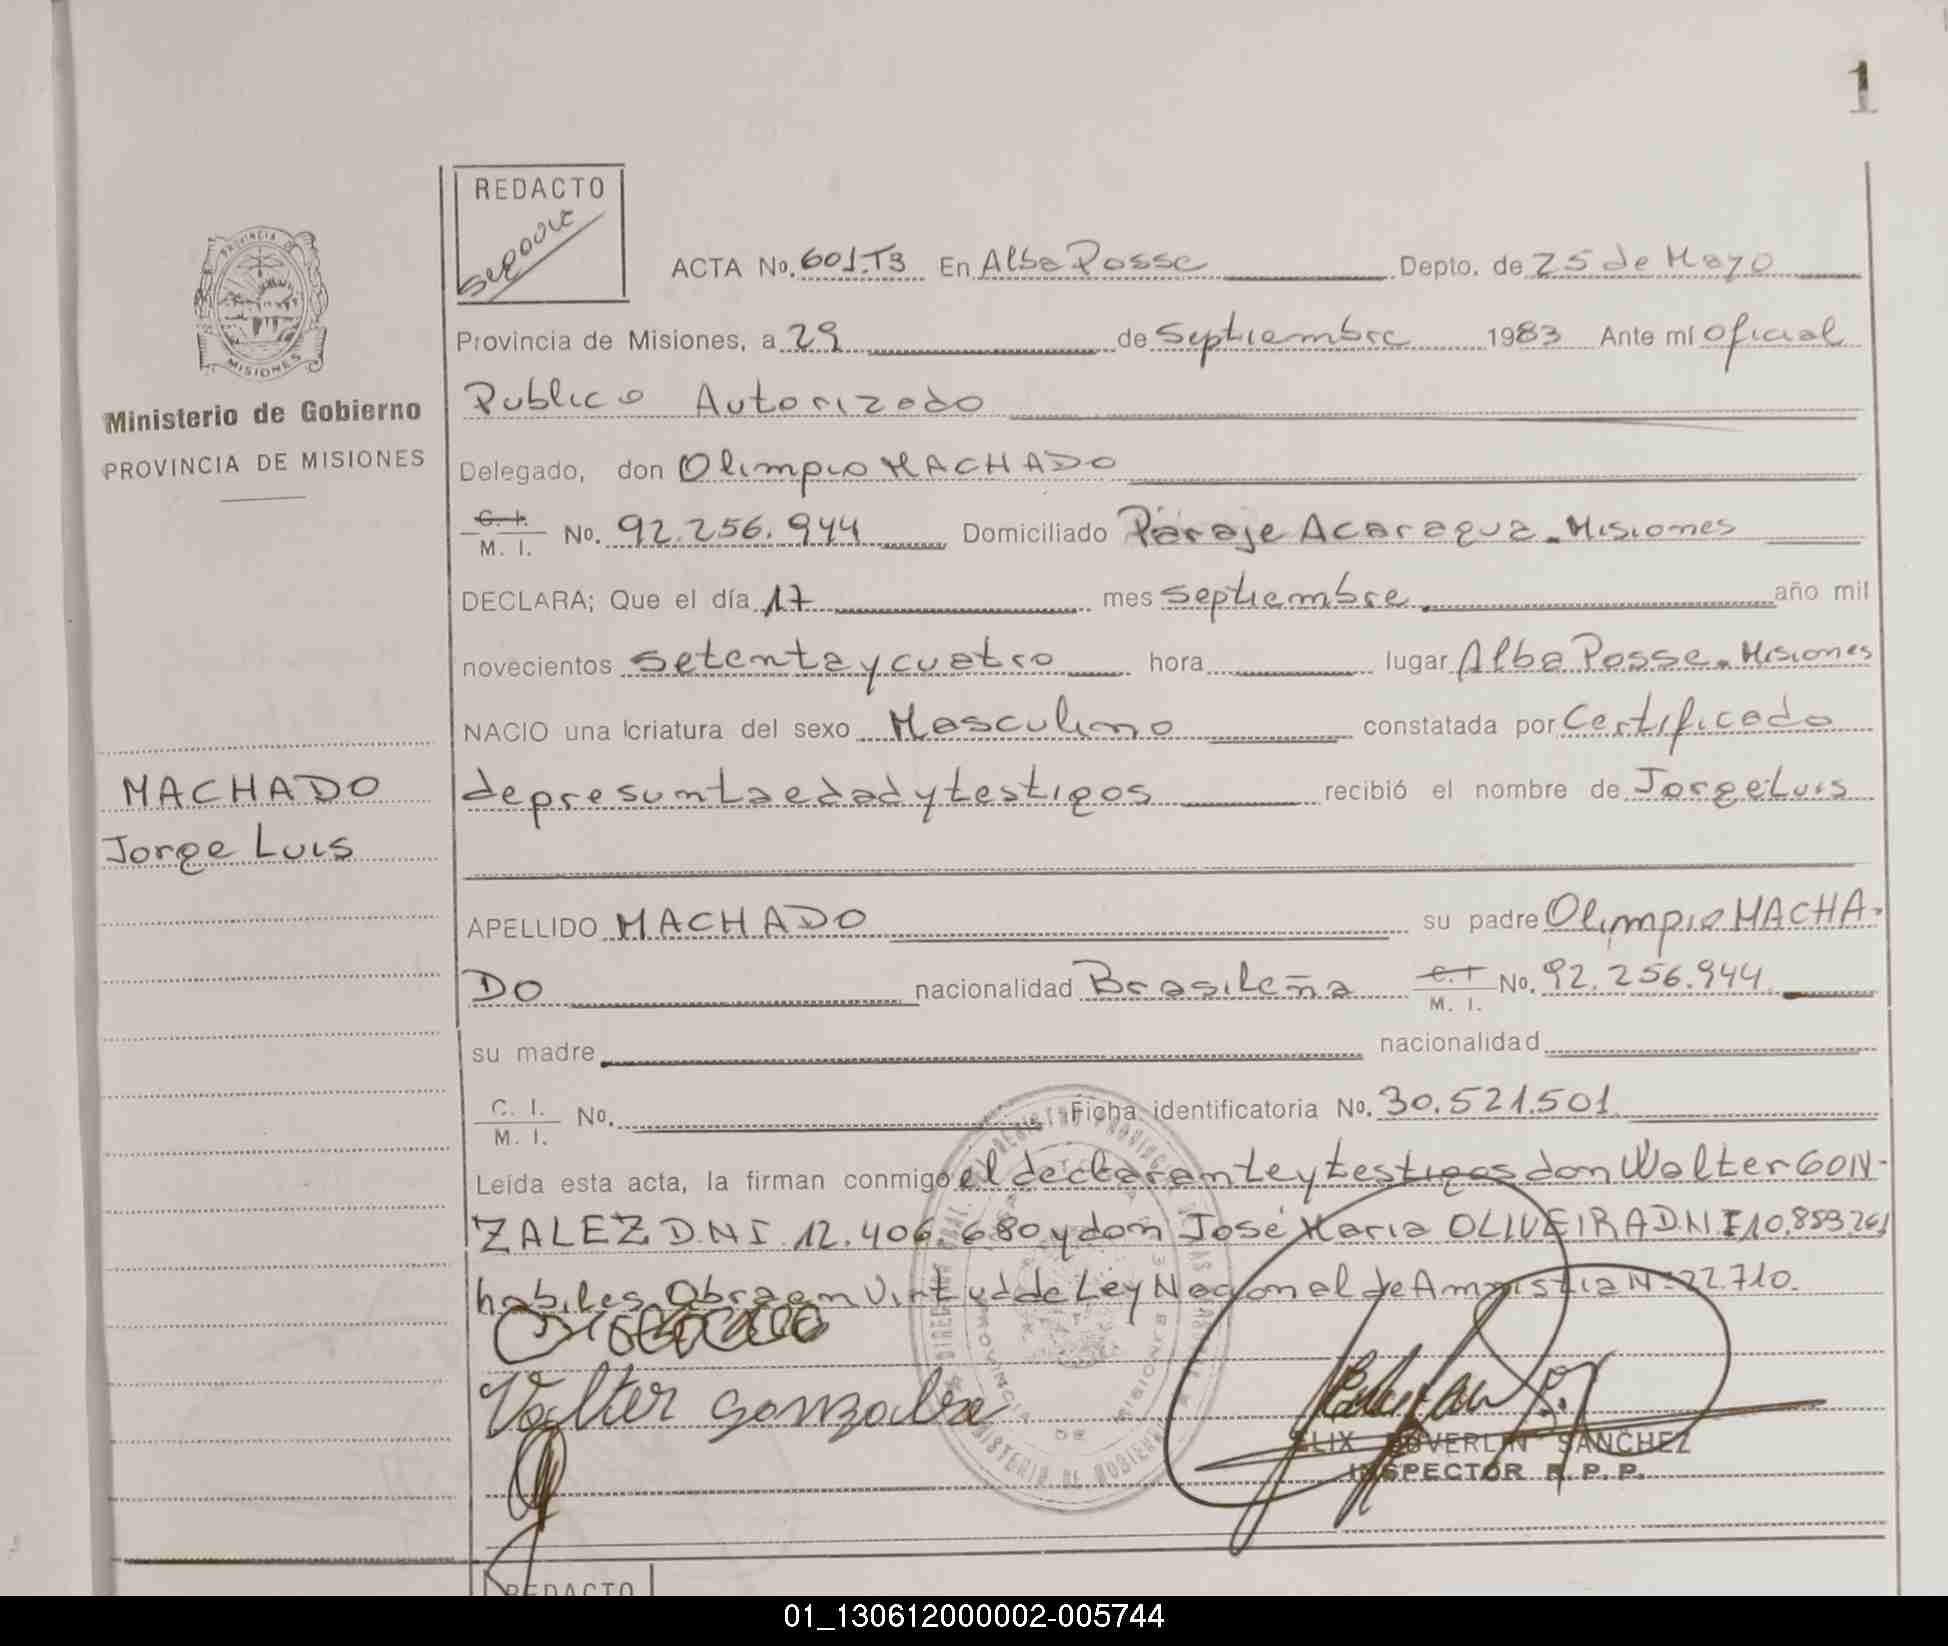 1
REDACTO
ACTA No. 601.T3 En Alba Posse Depto. de 25 de Mayo
PROVINCIA DE
MISIONES
Provincia de Misiones, a 29 de Septiembre 1983 Ante mí Oficial
Publico Autorizado
Ministerio de Gobierno
PROVINCIA DE MISIONES
Delegado, don Olimpio MACHADO
C. I.
M. I. No. 92.256.944 Domiciliado Paraje Acaragua - Misiones
DECLARA; Que el día 17 mes septiembre año mil
novecientos setenta y cuatro hora lugar Alba Posse - Misiones
NACIO una criatura del sexo Masculino constatada por Certificado
MACHADO
Jorge Luis
de presunta edad y testigos recibió el nombre de Jorge Luis
APELLIDO MACHADO su padre Olimpio MACHA-
DO nacionalidad Brasileña C. I. M. I. No. 92.256.944
su madre nacionalidad
C. I.
M. I. No. Ficha identificatoria No. 30.521.501
Leída esta acta, la firman conmigo el declarante y testigos don Walter GON-
ZALEZ D.N.I. 12.406.680 y don José Maria OLIVEIRA D.N.I 10.853.261
habiles. Obra en Virtud de Ley Nacional de Amnistia Nº 22710.
Valter Gonzalez
DUVERLIN SANCHEZ
INSPECTOR R. P. P.
REDACTO
01_130612000002-005744